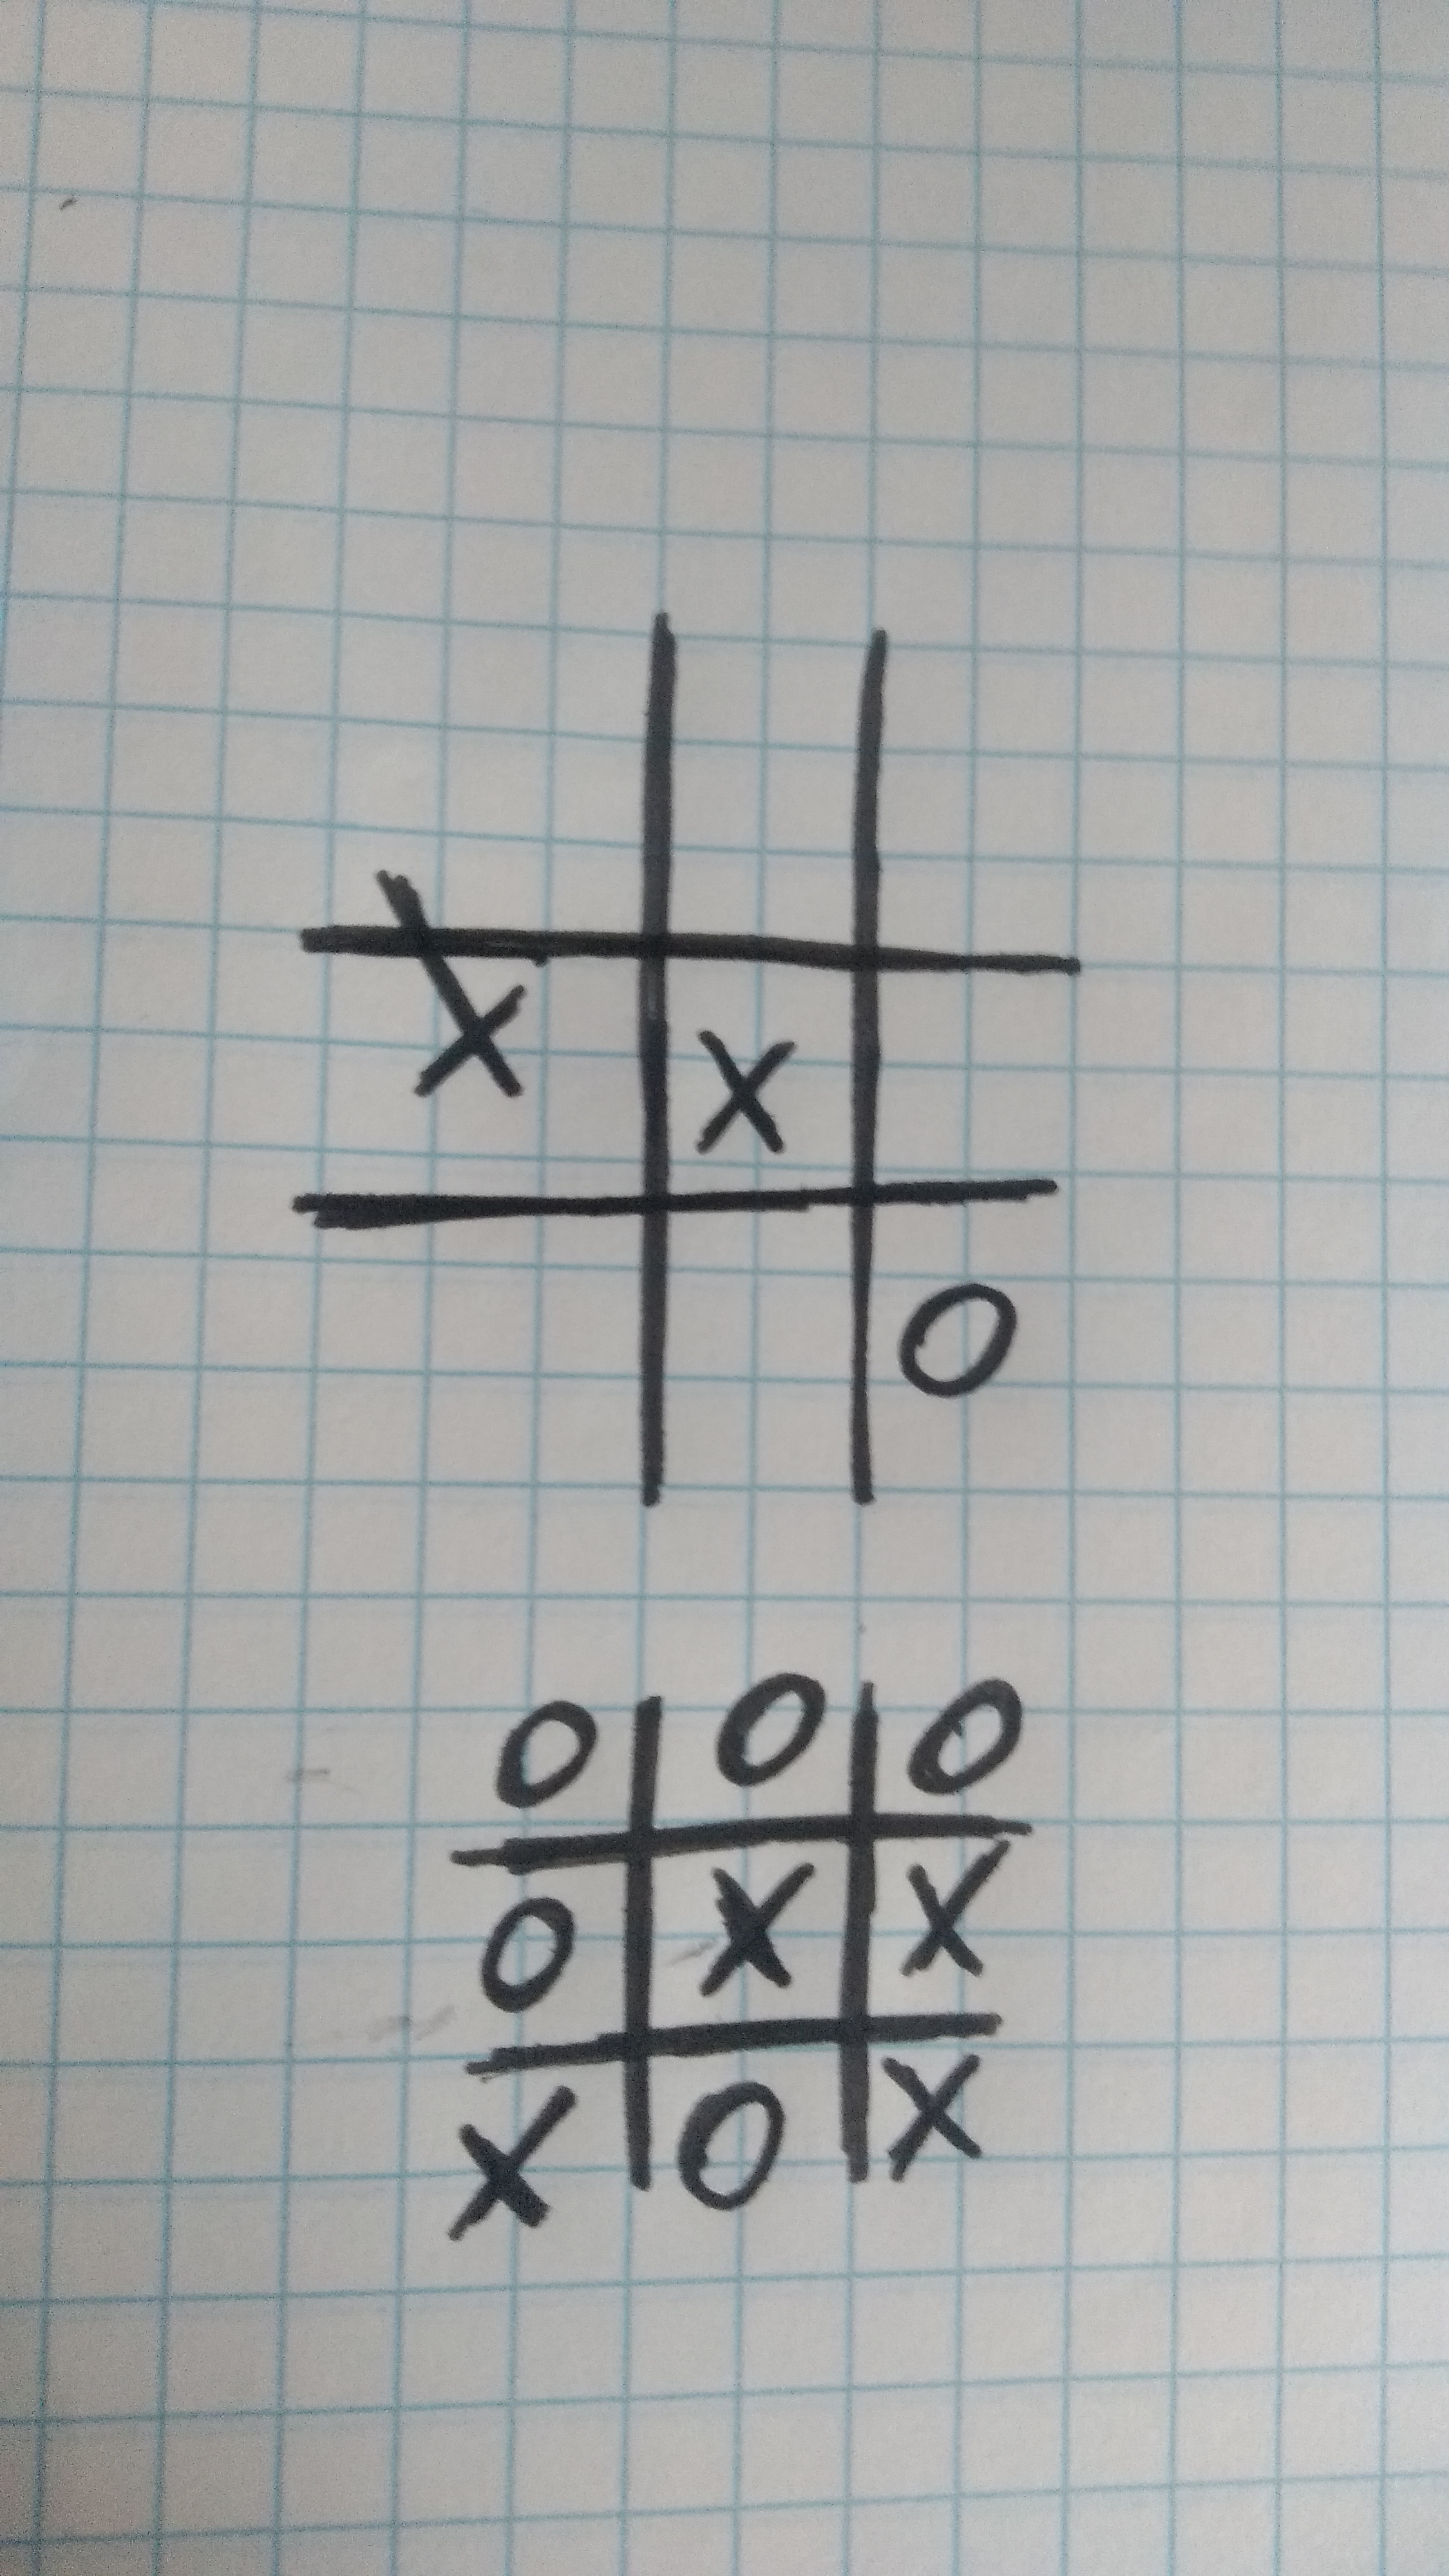 X X
O
O O O
O X X
X O X